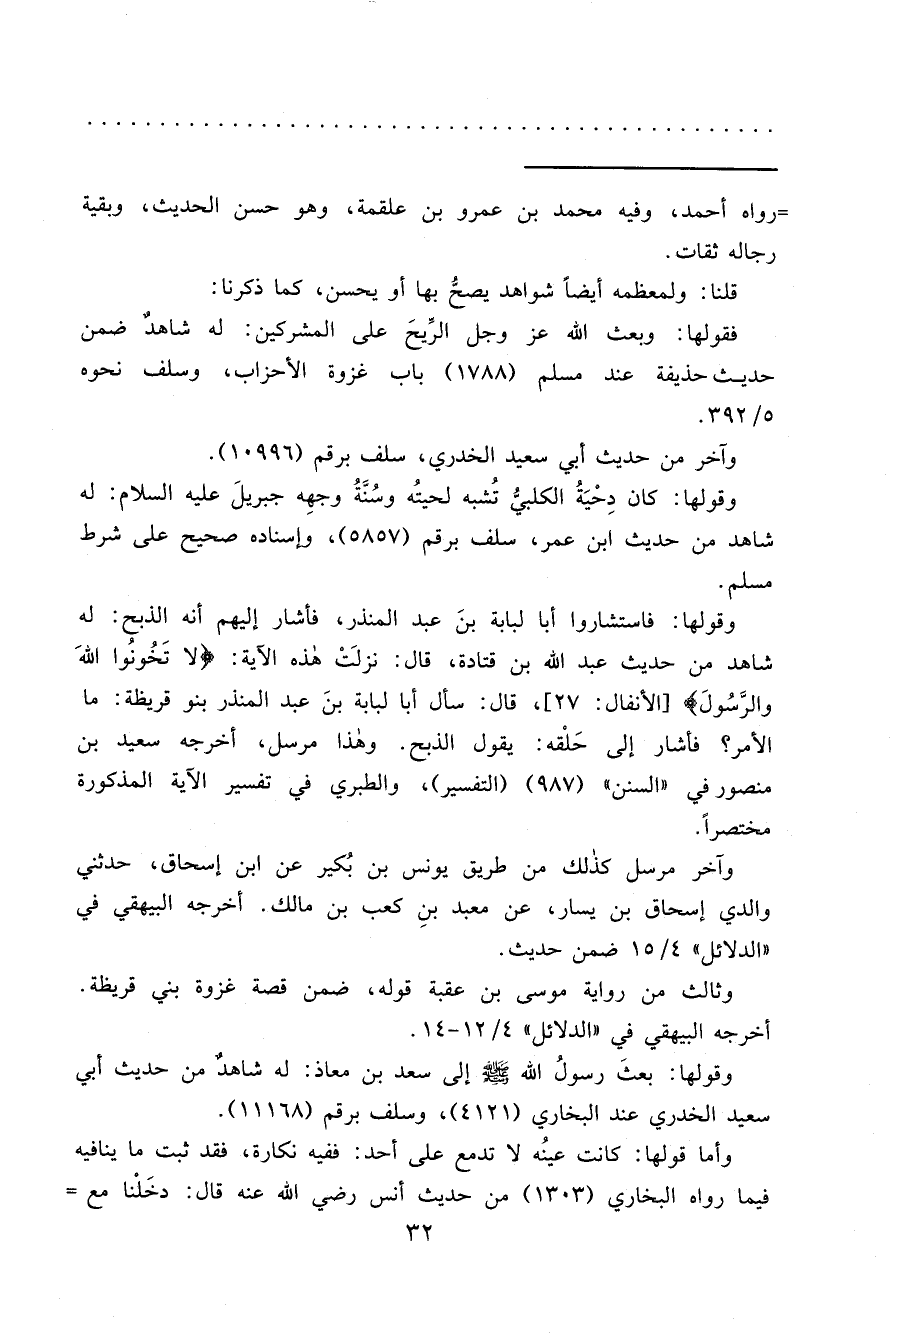 =رواه أحمد، وفيه محمد بن عمرو بن علقمة، وهو حسن الحديث، وبقية
رجاله ثقات.
قلنا: ولمعظمه أيضاً شواهد يصحُّ بها أو يحسن، كما ذكرنا:
فقولها: وبعث الله عز وجل الرِّيحَ على المشركين: له شاهدٌ ضمن
حديث حذيفة عند مسلم (١٧٨٨) باب غزوة الأحزاب، وسلف نحوه
٣٩٢/٥.
وآخر من حديث أبي سعيد الخدري، سلف برقم (١٠٩٩٦).
وقولها: كان دِحْيَةُ الكلبيُّ تُشبه لحيتُه وسُنَّةُ وجهِه جبريلَ عليه السلام: له
شاهد من حديث ابن عمر، سلف برقم (٥٨٥٧)، وإسناده صحيح على شرط
مسلم.
وقولها: فاستشاروا أبا لبابة بنَ عبد المنذر، فأشار إليهم أنه الذبح: له
شاهد من حديث عبد الله بن قتادة، قال: نزلتْ هٰذه الآية: ﴿لا تَخُونُوا اللهَ
والرَّسُولَ﴾ [الأنفال: ٢٧]، قال: سأل أبا لبابة بنَ عبد المنذر بنو قريظة: ما
الأمر؟ فأشار إلى حَلْقه: يقول الذبح. وهٰذا مرسل، أخرجه سعيد بن
منصور في «السنن» (٩٨٧) (التفسير)، والطبري في تفسير الآية المذكورة
مختصراً.
وآخر مرسل كذٰلك من طريق يونس بن بُكير عن ابن إسحاق، حدثني
والدي إسحاق بن يسار، عن معبد بنِ كعب بن مالك. أخرجه البيهقي في
«الدلائل» ١٥/٤ ضمن حديث.
وثالث من رواية موسى بن عقبة قوله، ضمن قصة غزوة بني قريظة.
أخرجه البيهقي في «الدلائل» ١٢/٤-١٤.
وقولها: بعثَ رسولُ الله ﷺ إلى سعد بن معاذ: له شاهدٌ من حديث أبي
سعيد الخدري عند البخاري (٤١٢١)، وسلف برقم (١١١٦٨).
وأما قولها: كانت عينُه لا تدمع على أحد: ففيه نكارة، فقد ثبت ما ينافيه
فيما رواه البخاري (١٣٠٣) من حديث أنس رضي الله عنه قال: دخَلْنا مع =
٣٢